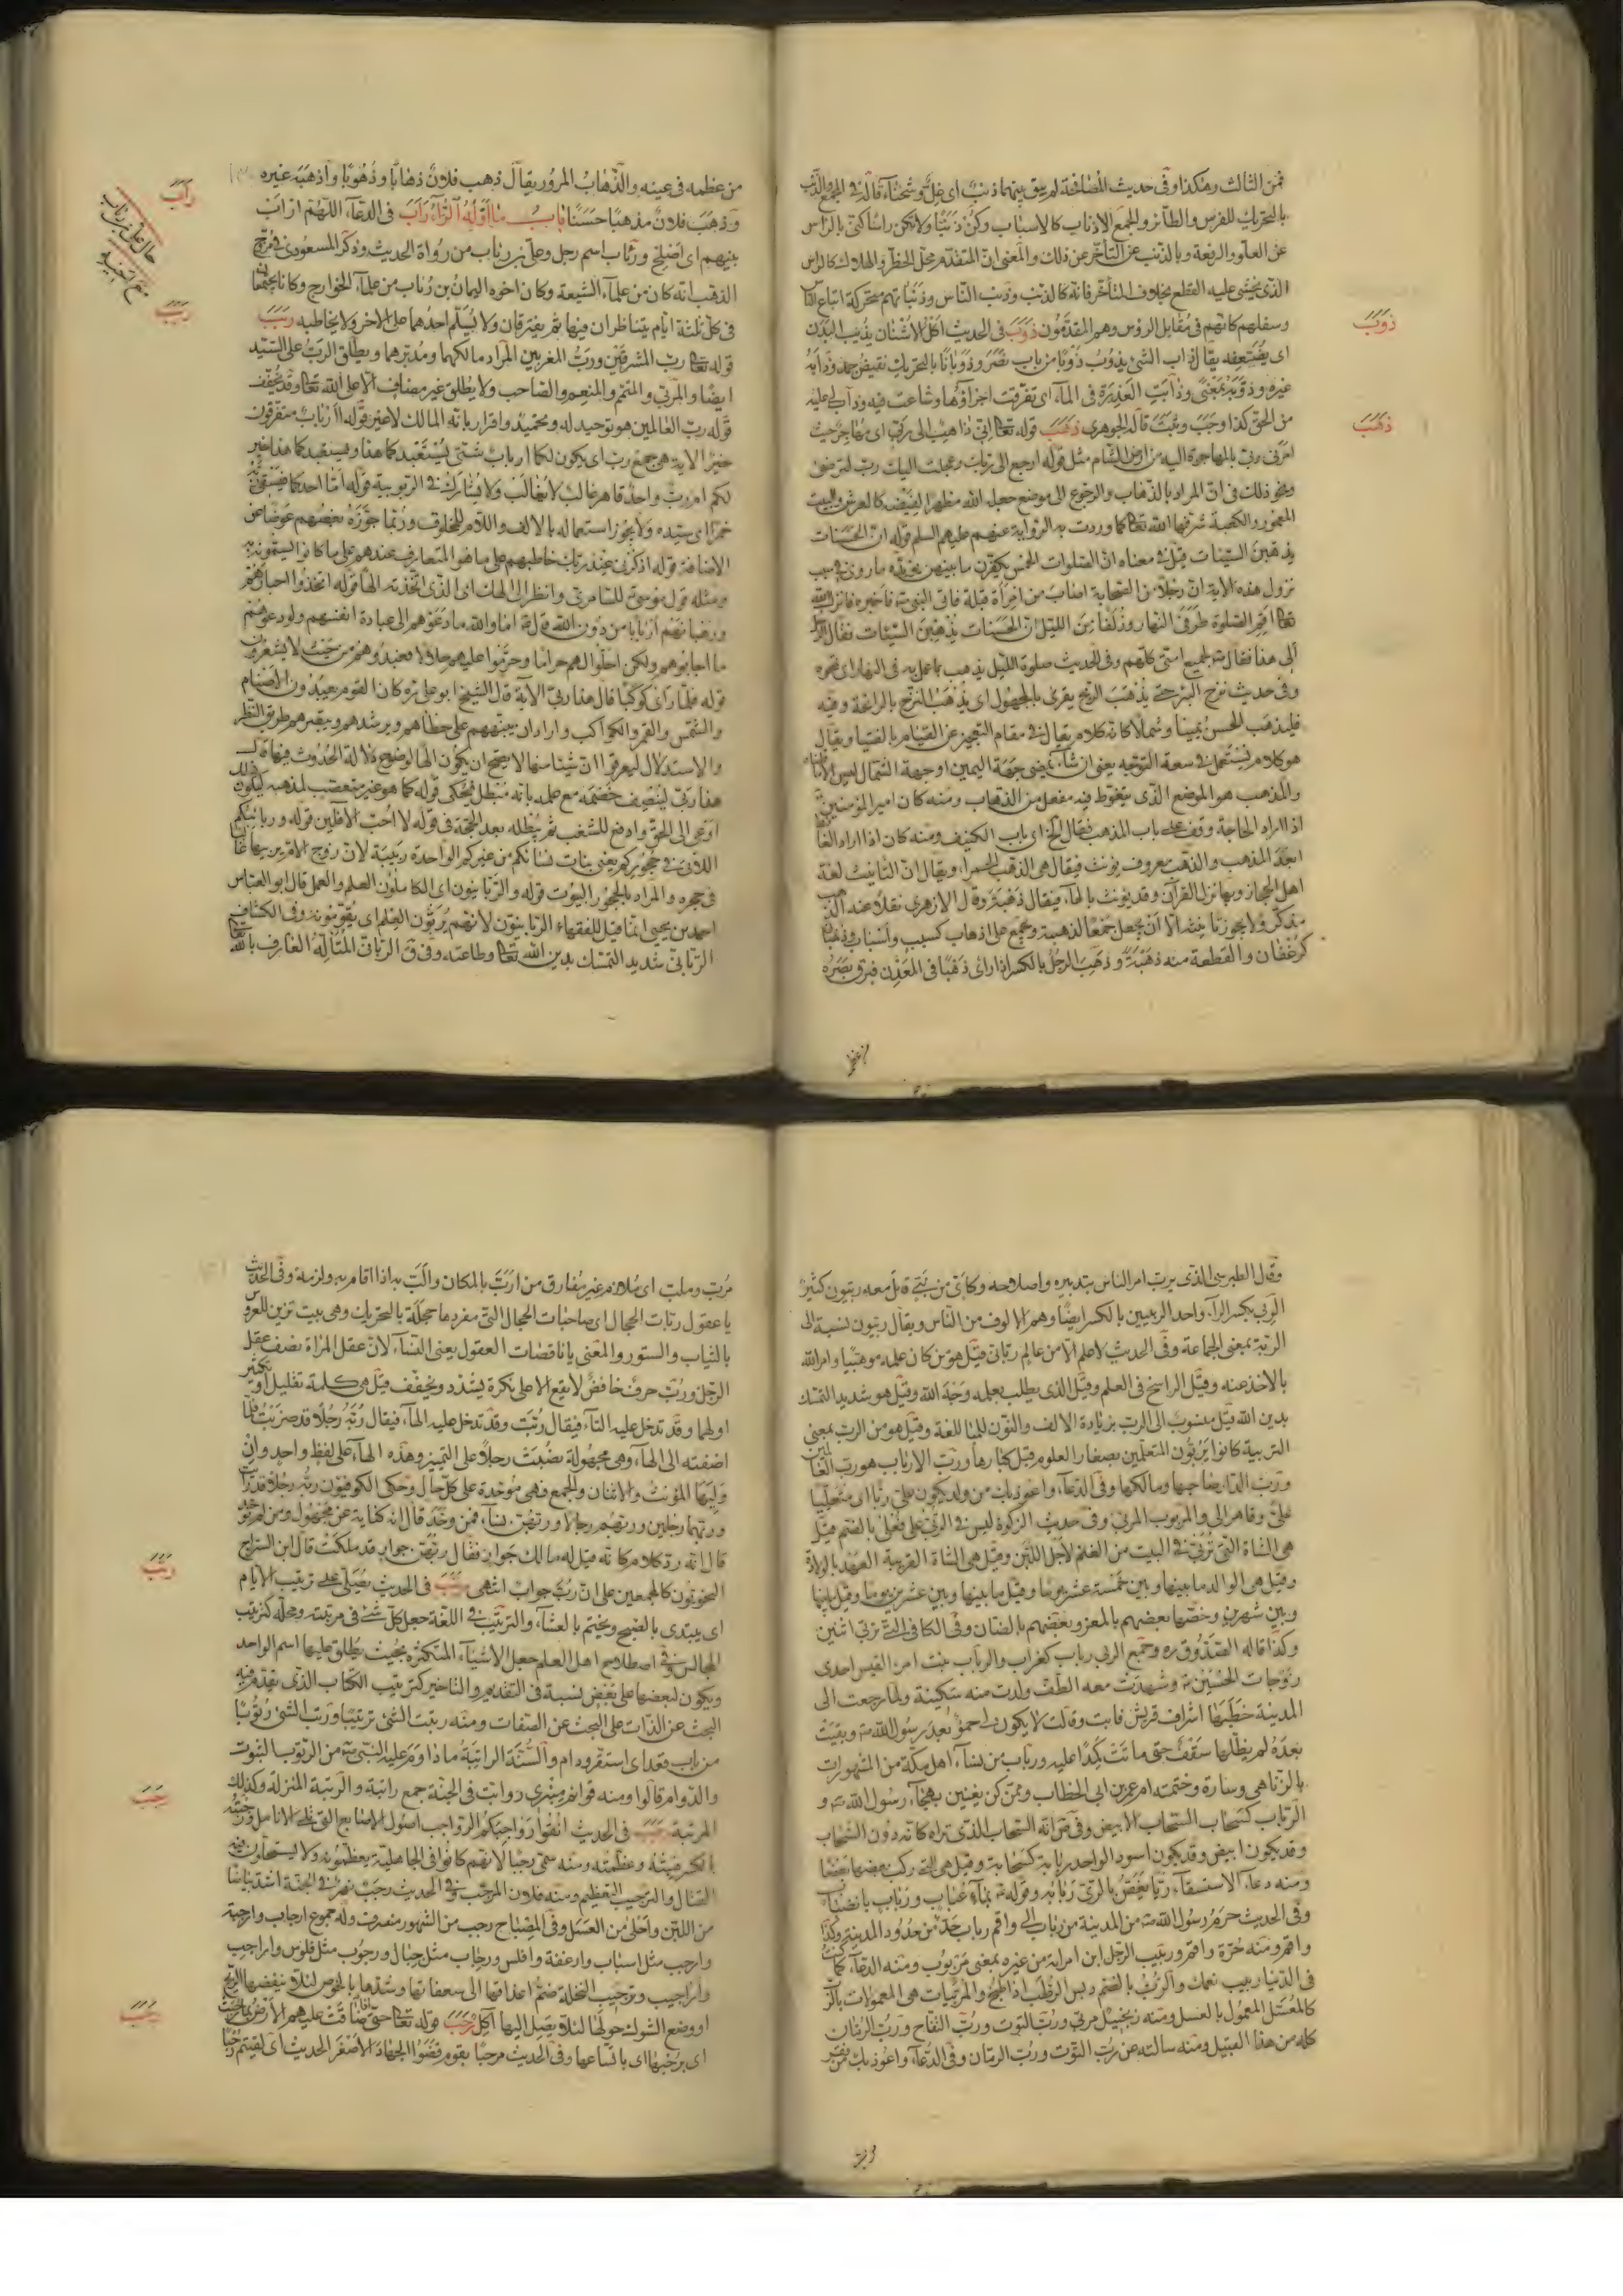 فمن الثالث وهكذا وفى حديث المصافحة لم يبق بينهما ذنب اى غل وشحناء قاله فى المجمع والذنب
بالتحريك للفرس والطائر والجمع الاذناب كالاسباب وكن ذنبا ولا تكن راسا كنى بالراس
عن العلو والرفعة وبالذنب عن التأخر عن ذلك والمعنى ان المتقدم محل الخطر والهلاك كالراس
الذى يخشى عليه القطع بخلاف المتأخر فانه كالذنب وذنب الناس وذنباتهم محركة اتباع الناس
وسفلهم كانهم فى مقابل الرؤس وهم المقدمون ذوب فى الحديث اكل الاشنان يذيب البدن
اى يضعفه يقال ذاب الشئ يذوب ذوبا من باب نصر وذوبانا بالتحريك نقيض جمد وأذابه
غيره وذوبه بمعنى وذابت العذرة فى الماء اى تفرقت اجزاؤها وشاعت فيه وذاب لى عليه
من الحق كذا وجب وثبت قاله الجوهرى ذهب قوله تعالى انى ذاهب الى ربى اى مهاجر حيث
امرنى ربى بالمهاجرة اليه من ارض الشام مثل قوله ارجع الى ربك وعجلت اليك رب لترضى
ونحو ذلك فى ان المراد بالذهاب والرجوع الى موضع جعله الله مظهرا لفيضه كالعرش والبيت
المعمور والكعبة شرفها الله تعالى كما وردت به الرواية عنهم عليهم السلم قوله ان الحسنات
يذهبن السيئات قيل فى معناه ان الصلوات الخمس يكفرن ما بينهن يؤيده ما روى فى سبب
نزول هذه الاية ان رجلا من الصحابة اصاب من امرأة قبلة فاتى النبى فاخبره فانزل الله
تعالى اقم الصلوة طرفى النهار وزلفا من الليل ان الحسنات يذهبن السيئات فقال الرجل
ألى هذا فقال لجميع امتى كلهم وفى الحديث صلوة الليل يذهب بما عمل به فى النهار اى تمحوه
وفى حديث نزح البئر حتى يذهب الريح يقرى بالمجهول اى يذهب النزح بالرائحة وفيه
فليذهب الحسن يمينا وشمالا كانه كلام يقال فى مقام التعجيز عن القيام بالفتيا ويقال
هو كلام يستعمل فى سعة التوجه يعنى ان شاء يمضى جهة اليمين او جهة الشمال ليس الا
والمذهب هو الموضع الذى يتغوط فيه مفعل من الذهاب ومنه كان امير المؤمنين
اذا اراد الحاجة وقف على باب المذهب فقال الخ اى باب الكنيف ومنه كان اذا اراد الغائط
ابعد المذهب والذهب معروف يؤنث فيقال هى الذهب الحمراء ويقال ان التأنيث لغة
اهل الحجاز وبها نزل القرآن وقد يؤنث بالهاء فيقال ذهبة وقال الازهرى نقلا عنه الذهب
مذكر ولا يجوز تانيثه الا أن يجعل جمعا لذهبة ويجمع على اذهاب كسبب واسباب وذهبان
كرغفان والقطعة منه ذهبة وذهب الرجل بالكسر اذا راى ذهبا فى المعدن فبرق بصره
ذوب
ذهب
من عظمه فى عينه والذهاب المرور يقال ذهب فلان ذهابا وذهوبا واذهبه غيره
وذهب فلان مذهبا حسنا باب ما اوله الراء رأب فى الدعاء اللهم ارأب
بينهم اى اصلح ورئاب اسم رجل وعلى بن رئاب من رواة الحديث وذكر المسعودى فى مروج
الذهب انه كان من علماء الشيعة وكان اخوه اليمان بن رئاب من علماء الخوارج وكانا يجتمعان
فى كل ثلثة ايام يتناظران فيها ثم يفترقان ولا يسلم احدهما على الاخر ولا يخاطبه ربب
قوله تعالى رب المشرقين ورب المغربين المراد مالكهما ومدبرهما ويطلق الرب على السيد
ايضا والمربى والمتمم والمنعم والصاحب ولا يطلق غير مضاف الا على الله تعالى وقد يخفف
قوله رب العالمين هو توحيد له وتحميد واقرار بانه المالك لا غير قوله أأرباب متفرقون
خير الاية هى جمع رب اى يكون لكما ارباب شتى يستعبدكما هذا ويستعبدكما هذا خير
لكم ام رب واحد قاهر غالب لا يغالب ولا يشارك فى الربوبية قوله اما احدكما فيسقى ربه
خمرا اى سيده ولا يجوز استعماله بالالف واللام للمخلوق وربما جوزه بعضهم عوضا عن
الاضافة قوله اذكرنى عند ربك خاطبهم على ما هو المتعارف عندهم على ما كانوا يسمونه به
ومثله قول موسى للسامرى وانظر الى الهك اى الذى اتخذته الها قوله اتخذوا احبارهم
ورهبانهم اربابا من دون الله قال اما والله ما دعوهم الى عبادة انفسهم ولو دعوهم
ما اجابوهم ولكن احلوا لهم حراما وحرموا عليهم حلالا فعبدوهم من حيث لا يشعرون
قوله فلما رأى كوكبا قال هذا ربى الآية قال الشيخ ابو على ره كان القوم يعبدون الاصنام
والشمس والقمر والكواكب واراد ان ينبههم على خطاهم ويرشدهم ويبصرهم طريق النظر
والاستدلال ليعرفوا ان شيئا منها لا يصح ان يكون الها لوضوح دلالة الحدوث فيها قال
هذا ربى لينصف خصمه مع علمه بانه مبطل فيحكى قوله كما هو غير متعصب لمذهبه ليكون ذلك
ادعى الى الحق وادفع للشغب ثم يبطله بعد الحجة فى قوله لا احب الآفلين قوله وربائبكم
اللاتى فى حجوركم يعنى بنات نسائكم من غيركم الواحدة ربيبة لان زوج الام يربيها غالبا
فى حجره والمراد بالحجور البيوت قوله والربانيون اى الكاملون العلم والعمل قال ابو العباس
احمد بن يحيى انما قيل للفقهاء الربانيون لانهم يربون العلم اى يقومونه وفى الكشاف
الربانى شديد التمسك بدين الله تعالى وطاعته وفى ق الربانى المتأله العارف بالله
رأب
ربب
وقال الطبرسى الذى يرب امر الناس بتدبيره واصلاحه وكاين من نبى قاتل معه ربيون كثير
الربى بكسر الراء واحد الربيين بالكسر ايضا وهم الالوف من الناس ويقال ربيون نسبة الى
الربة بمعنى الجماعة وفى الحديث لا علم الا من عالم ربانى قيل هو من كان علمه موهبيا وامر الله
بالاخذ عنه وقيل الراسخ فى العلم وقيل الذى يطلب بعلمه وجه الله وقيل هو شديد التمسك
بدين الله قيل منسوب الى الرب بزيادة الالف والنون للمبالغة وقيل هو من الرب بمعنى
التربية كانوا يربون المتعلمين بصغار العلوم قبل كبارها ورب الارباب هو رب العالمين
ورب الدار صاحبها ومالكها وفى الدعاء واعوذ بك من ولد يكون على ربا اى متجبرا
على وقاهرا لى والمربوب المربى وفى حديث الزكوة ليس فى الربى على فعلى بالضم قيل
هى الشاة التى تربى فى البيت من الغنم لاجل اللبن وقيل هى الشاة القريبة العهد بالولادة
وقيل هى الوالد ما بينها وبين خمسة عشر يوما وقيل ما بينها وبين عشرين يوما وقيل ما بينها
وبين شهرين وخصها بعضهم بالمعز وبعضهم بالضان وفى الكافى التى تربى اثنين
وكذا قاله الصدوق ره وجمع الربى رباب كغراب والرباب بنت امرء القيس احدى
زوجات الحسين وشهدت معه الطف ولدت منه سكينة ولما رجعت الى
المدينة خطبها اشراف قريش فابت وقالت لا يكون لى حمو بعد رسول الله وبقيت
بعده لم يظلها سقف حتى ماتت كمدا عليه ورباب من نساء اهل مكة من المشهورات
بالزنا هى وسارة وختمة ام عمر بن الخطاب وممن كن يغنين بهجاء رسول الله و
الرباب كسحاب السحاب الابيض وفى ص انه السحاب الذى تراه كانه دون السحاب
وقد يكون ابيض وقد يكون اسود الواحد ربابة كسحابة وقيل هى التى ركب بعضها بعضا
ومنه دعاء الاستسقاء
وفى الحديث حرم رسول الله من المدينة من رباب الى واقم رباب حد من حدود المدينة وكذا
واقم ومنه حرة واقم وربيب الرجل ابن امراته من غيره بمعنى مربوب ومنه الدعاء كما كنت
فى الدنيا ربيب نعمك والرب بالضم دبس الرطب اذا طبخ والمربيات هى المعمولات بالرب
كالمعسل المعمول بالعسل ومنه زنجبيل مربى ورب التوت ورب التفاح ورب الرمان
كله من هذا القبيل ومنه سالته عن رب التوت ورب الرمان وفى الدعاء واعوذ بك من فقر
مرب وملب اى ملازم غير مفارق من ارب بالمكان والب به اذا اقام به ولزمه وفى الحديث
يا عقول ربات الحجال اى صاحبات الحجال التى مفردها حجلة بالتحريك وهى بيت تزين للعروس
بالثياب والستور والمعنى يا ناقصات العقول يعنى النساء لان عقل المراة نصف عقل
الرجل ورب حرف خافض لا يقع الا على نكرة يشدد ويخفف قيل هى كلمة تقليل او تكثير
اولهما وقد تدخل عليه التاء فيقال ربت وقد تدخل عليه الهاء فيقال ربه رجلا قد ضربت فلما
اضفته الى الهاء وهى مجهولة نصبت رجلا على التميز وهذه الهاء على لفظ واحد وان
وليها المؤنث والاثنان والجمع فهى موحدة على كل حال وحكى الكوفيون ربه رجلا قد رايت
وربهما رجلين وربهم رجالا وربهن نساء فمن وحد قال انه كناية عن مجهول ومن لم يوحد
قال انه رد كلام كانه قيل له مالك جوار فقال ربهن جوار قد ملكت قال ابن السراج
النحويون كالمجمعين على ان رب جواب انتهى رتب فى الحديث يصلى على ترتيب الايام
اى يبتدى بالصبح ويختم بالعشاء والترتيب فى اللغة جعل كل شئ فى مرتبته ومحله كترتيب
المجالس وفى اصطلاح اهل العلم جعل الاشياء المتكثرة بحيث يطلق عليها اسم الواحد
ويكون لبعضها على بعض نسبة فى التقديم والتاخير كترتيب الكتاب الذى يقدم فيه
البحث عن الذات على البحث عن الصفات ومنه رتبت الشئ ترتيبا ورتب الشئ رتوبا
من باب قعد اى استقر ودام والسنة الراتبة ما داوم عليه النبى من الرتوب الثبوت
والدوام قالوا ومنه
المرتبة رجب فى الحديث انقوا رواجبكم الرواجب اصول الاصابع التى تلى الانامل ورجبته
بالكسر هبته وعظمته ومنه سمى رجبا لانهم كانوا فى الجاهلية يعظمونه ولا يستحلون فيه
القتال والترجيب التعظيم ومنه فلان المرجب وفى الحديث رجب نهر فى الجنة اشد بياضا
من اللبن واحلى من العسل وفى المصباح رجب من الشهور منصرف وله جموع ارجاب وارجبة
وارجب مثل اسباب وارغفة وافلس ورجاب مثل جبال ورجوب مثل فلوس واراجب
واراجيب وترجيب النخلة ضم اعذاقها الى سعفاتها وشدها بالخوص لئلا ينفضها الريح
او وضع الشوك حولها لئلا يصل اليها آكل رحب قوله تعالى حتى اذا ضاقت عليهم الارض بما رحبت
اى برحبها اى باتساعها وفى الحديث مرحبا بقوم قضوا الجهاد الاصغر الحديث اى لقيتم رحبا
رتب
رجب
رحب